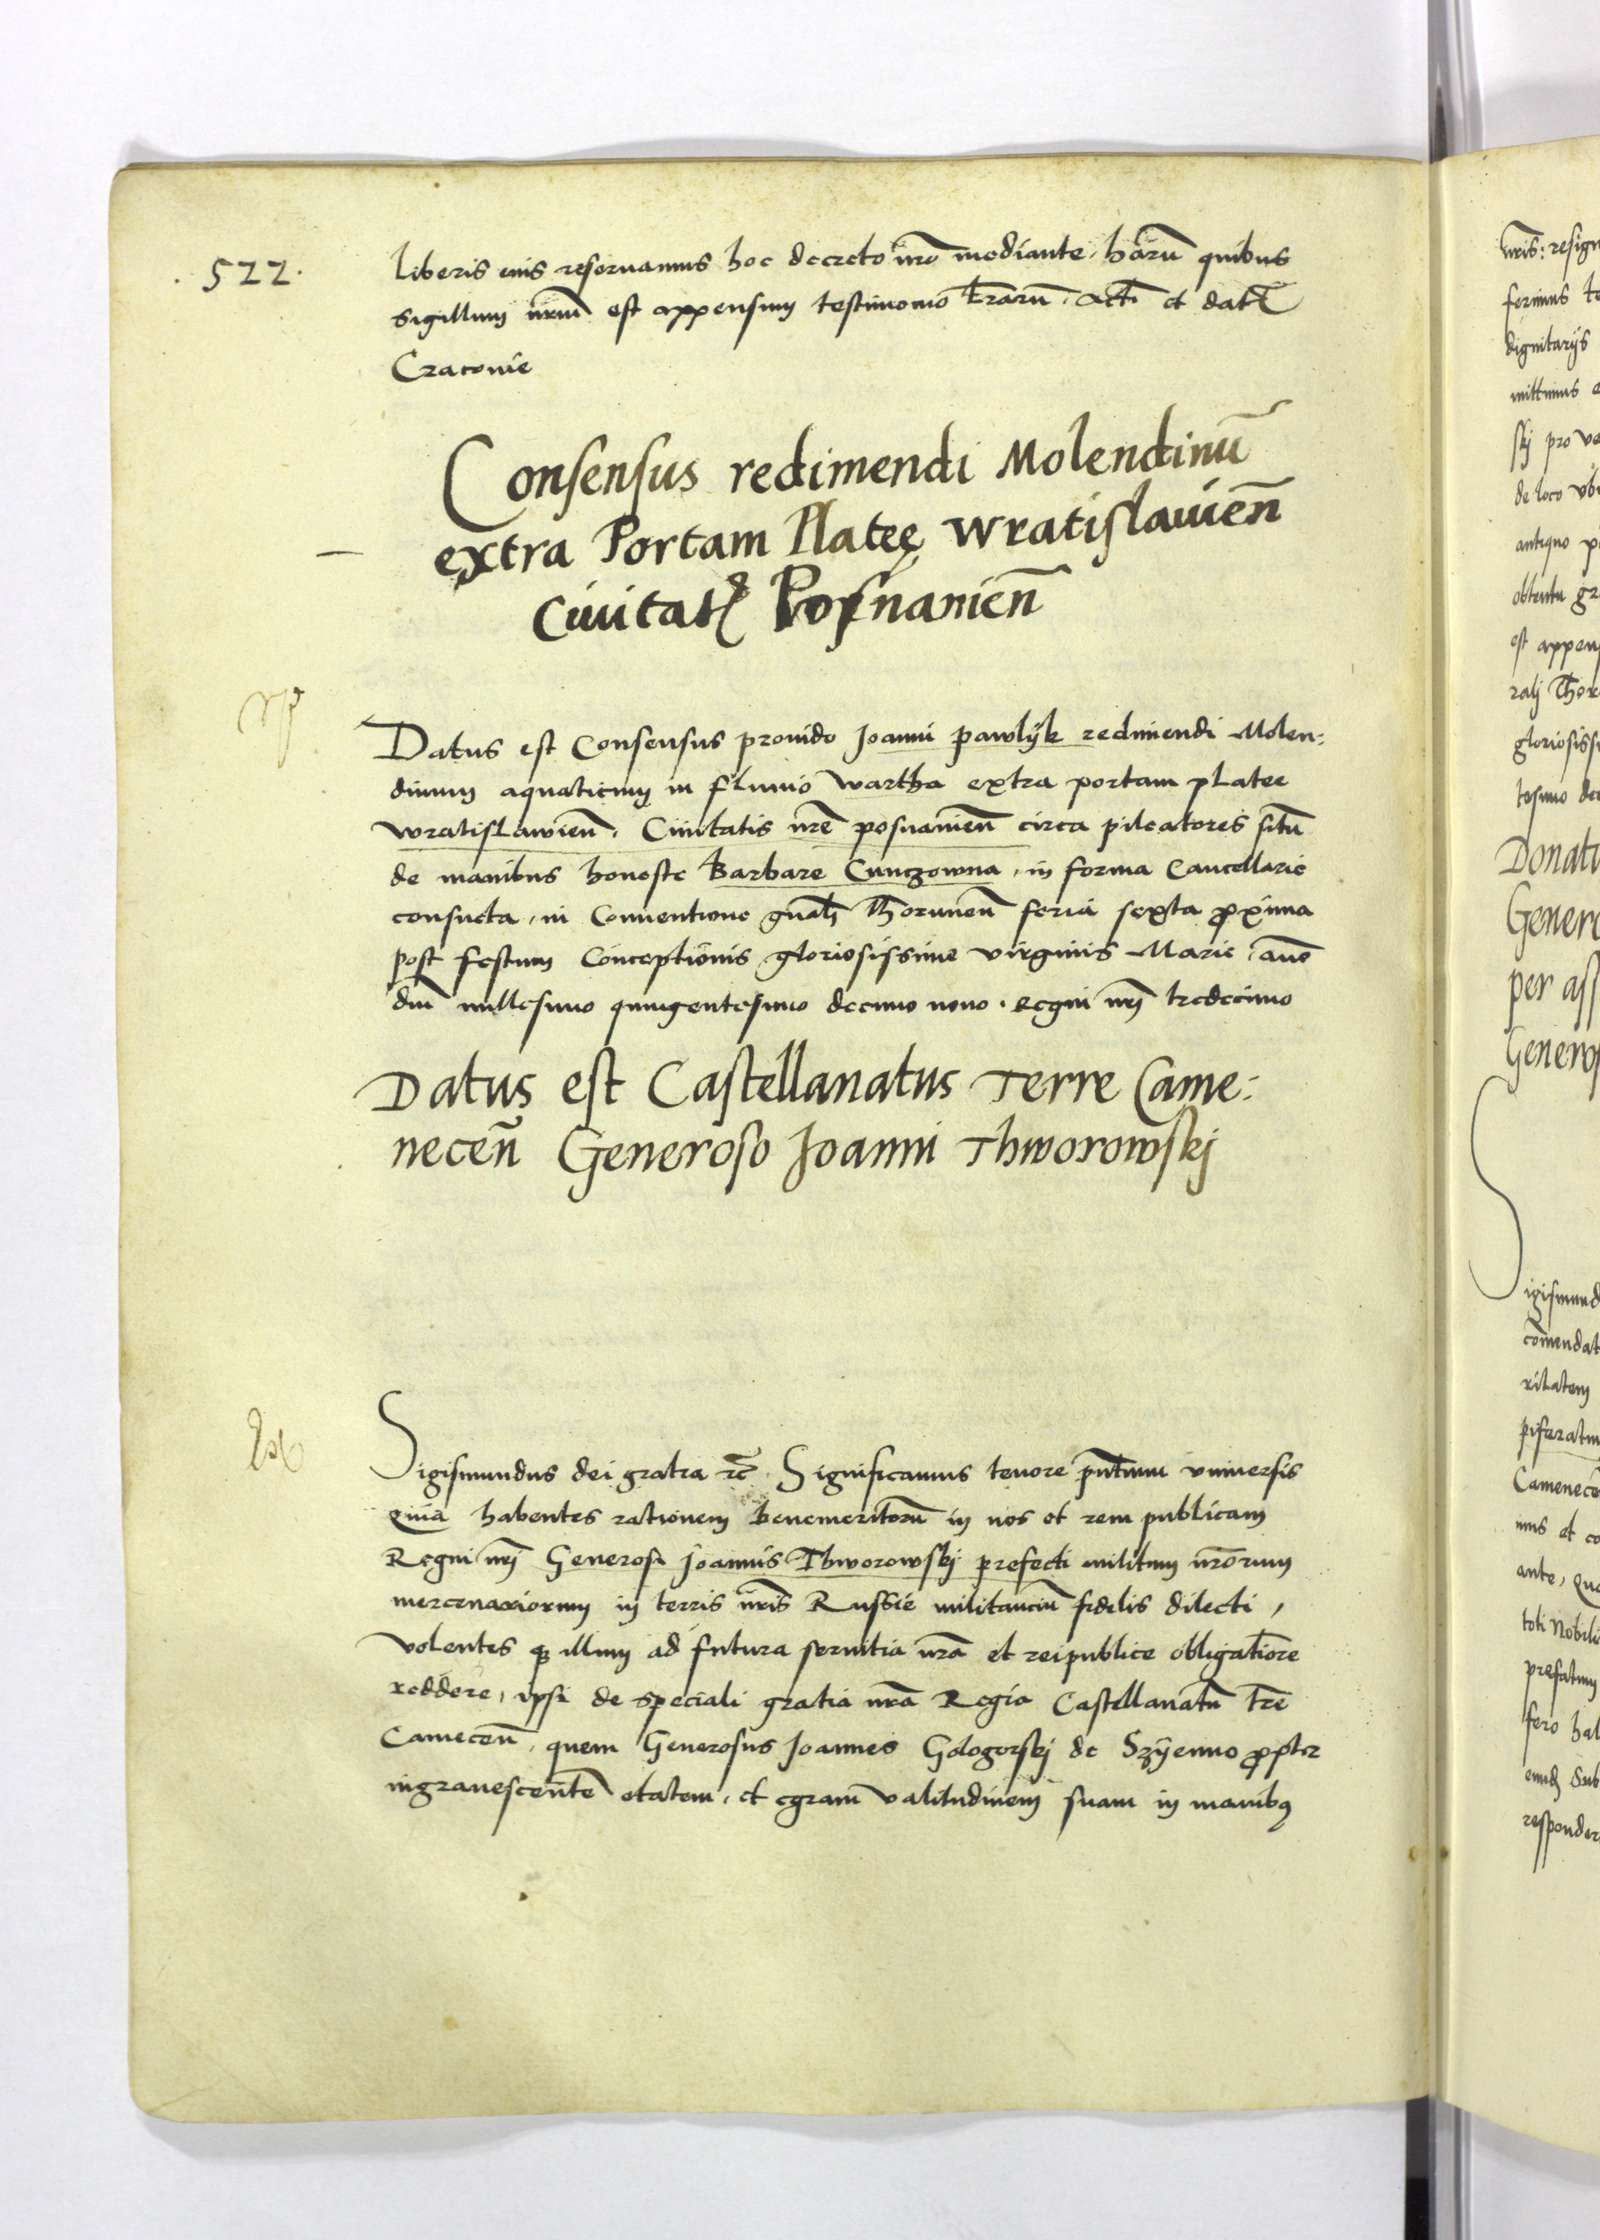 522.
liberis eius reseruamus hoc decreto nr̄o mediante, harū quibus
sigillum nr̄um est appensum testimonio l̄rarū. Act̄ et dat̄
Cracovie
Consensus redimendi Molendinū
extra Portam Platee Wratislauien̄
Ciuitat̄ Posnanien̄
Datus est Consensus prouido Joanni pawlÿk redimendi Molen:
dinum aquaticum in fluuio wartha extra portam platee
wratislawien̄. Ciuitatis nr̄e posnanien̄ circa pileatores sitū
de manibus honeste Barbare Cunczowna, in forma Cancellarie
consueta, in Conuentione gn̄ali Thorunen̄ feria sexta proxima
post festum Conceptionis gloriosissime virginis Marie, anno
dn̄i millesimo quingentesimo decimo nono. Regni nr̄i tredecimo
Datus est Castellanatus Terre Came:
necen̄ Generoso Joanni Thworowskj
Sigismundus dei gratia rc̄. Significamus tenore pn̄tium vniuersis
Quia habentes rationem benemeritorū in nos et rem publicam
Regni nr̄i Generosi Joannis Thworowskj prefecti militum nr̄orum
mercenariorum in terris nr̄is Russie militanciū fidelis dilecti,
volentes q illum ad futura seruitia nr̄a et reipublice obligatiorē
reddere, ipsi de speciali gratia nr̄a Regia Castellanatū tr̄e
Camecen̄, quem Generosus Joannes Gologorskj de Szÿenno propter
ingrauescentē etatem, et egram valitudinem suam in manibus
wr̄is: resign
ferimus te
dignitarijs
mittimus e
skj pro ve
de loco vbi
antiquo p
obtentu gr
est appens
ralj Thor
gloriosissi
tesimo de
Donatu
Genero
per ass
Generos
Sigismund
com̄endat
ritatem
Camenece
mus et co
ante, Qua
toti Nobili
prefatum
fero hal
eiusd̄ Sub
responder